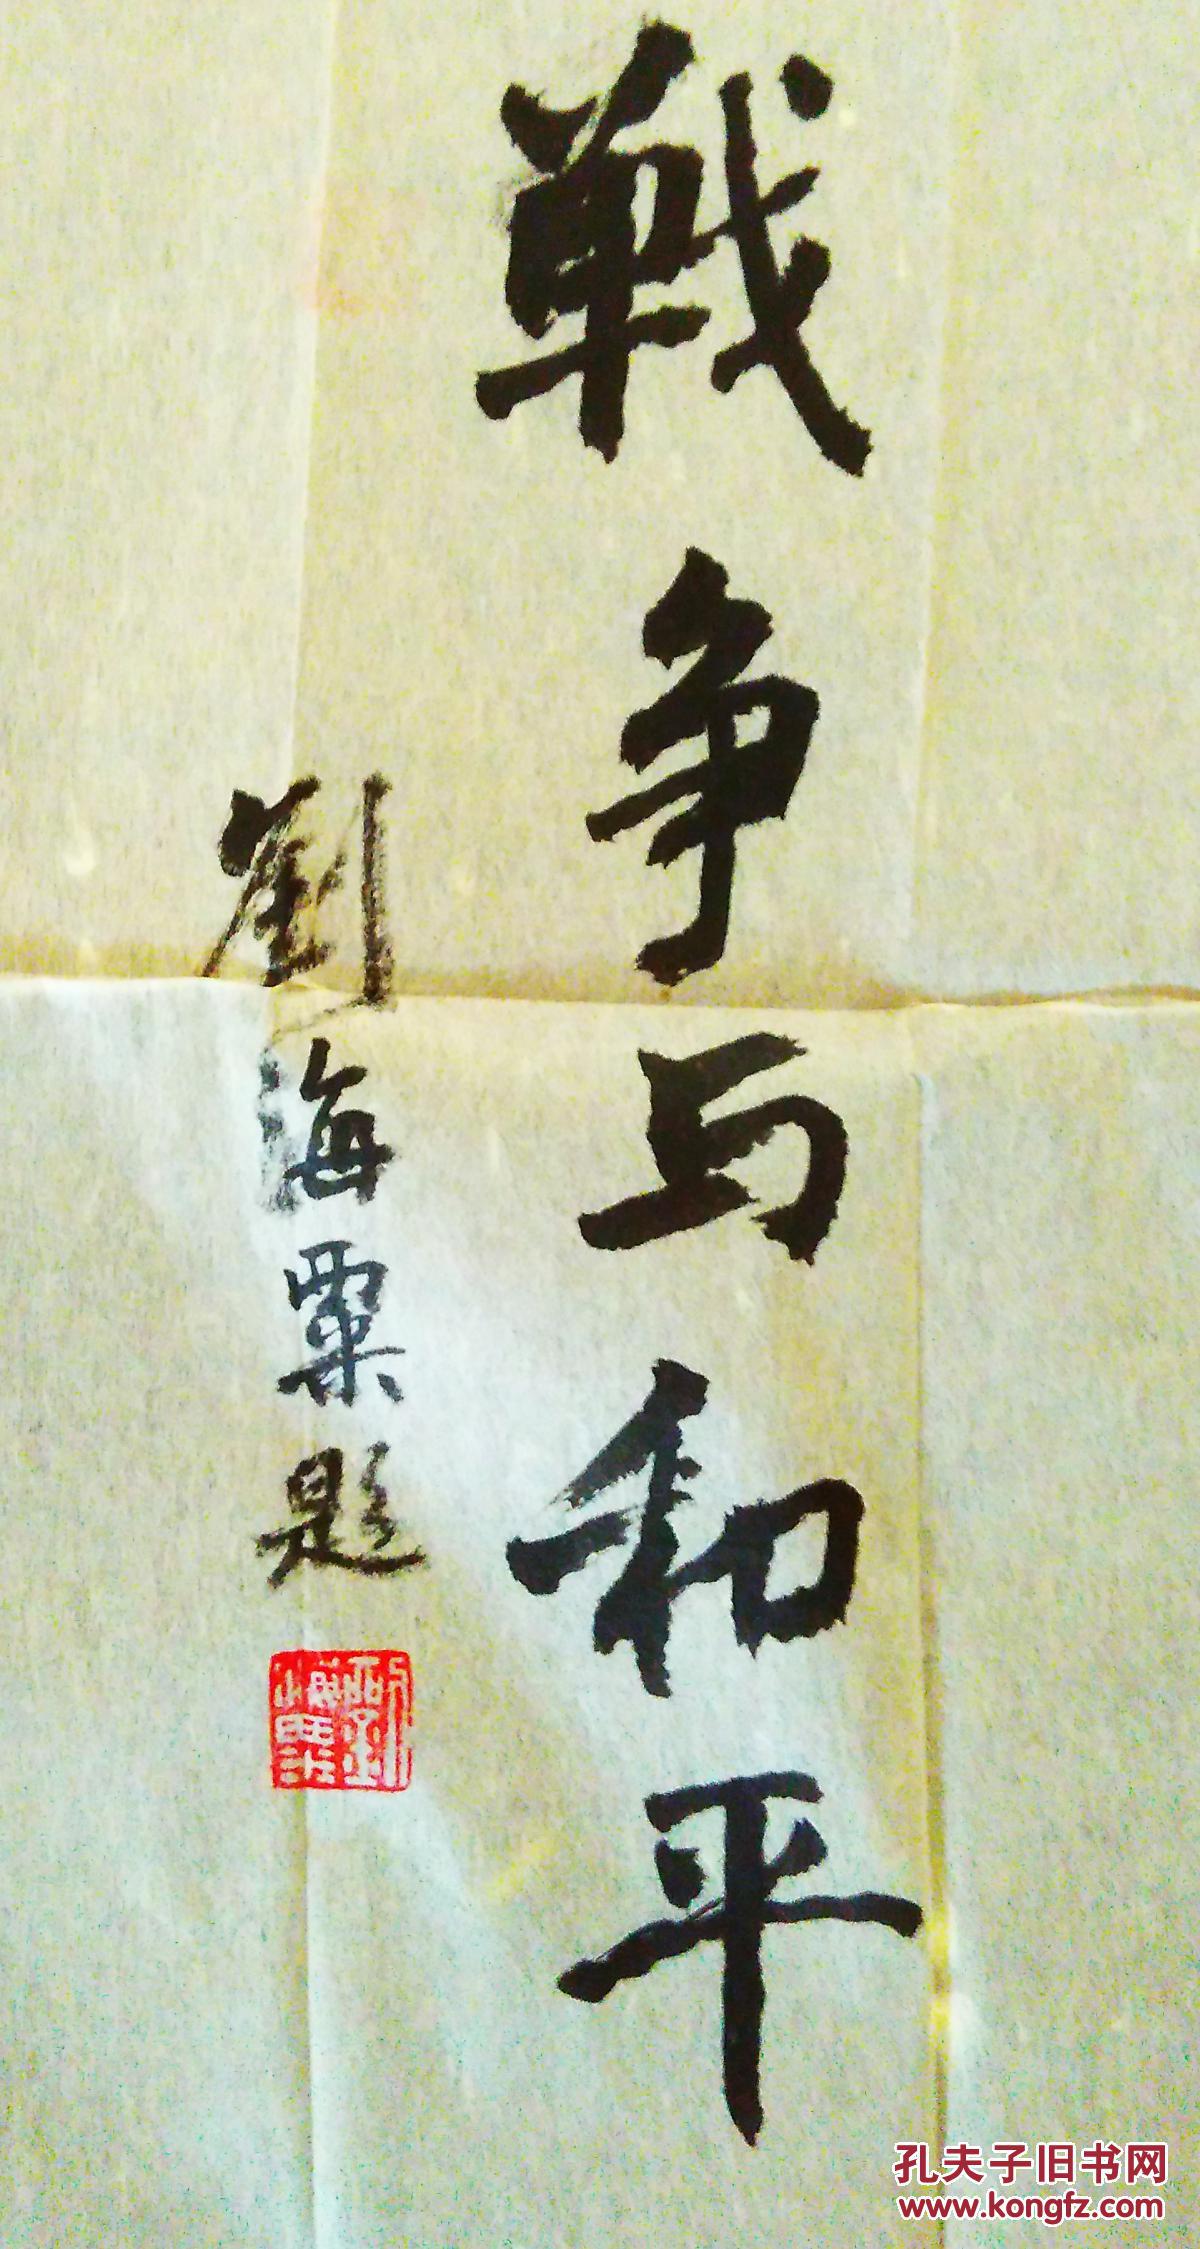 戦争与和平
劉海粟題
孔夫子旧书网
www.kongfz.com